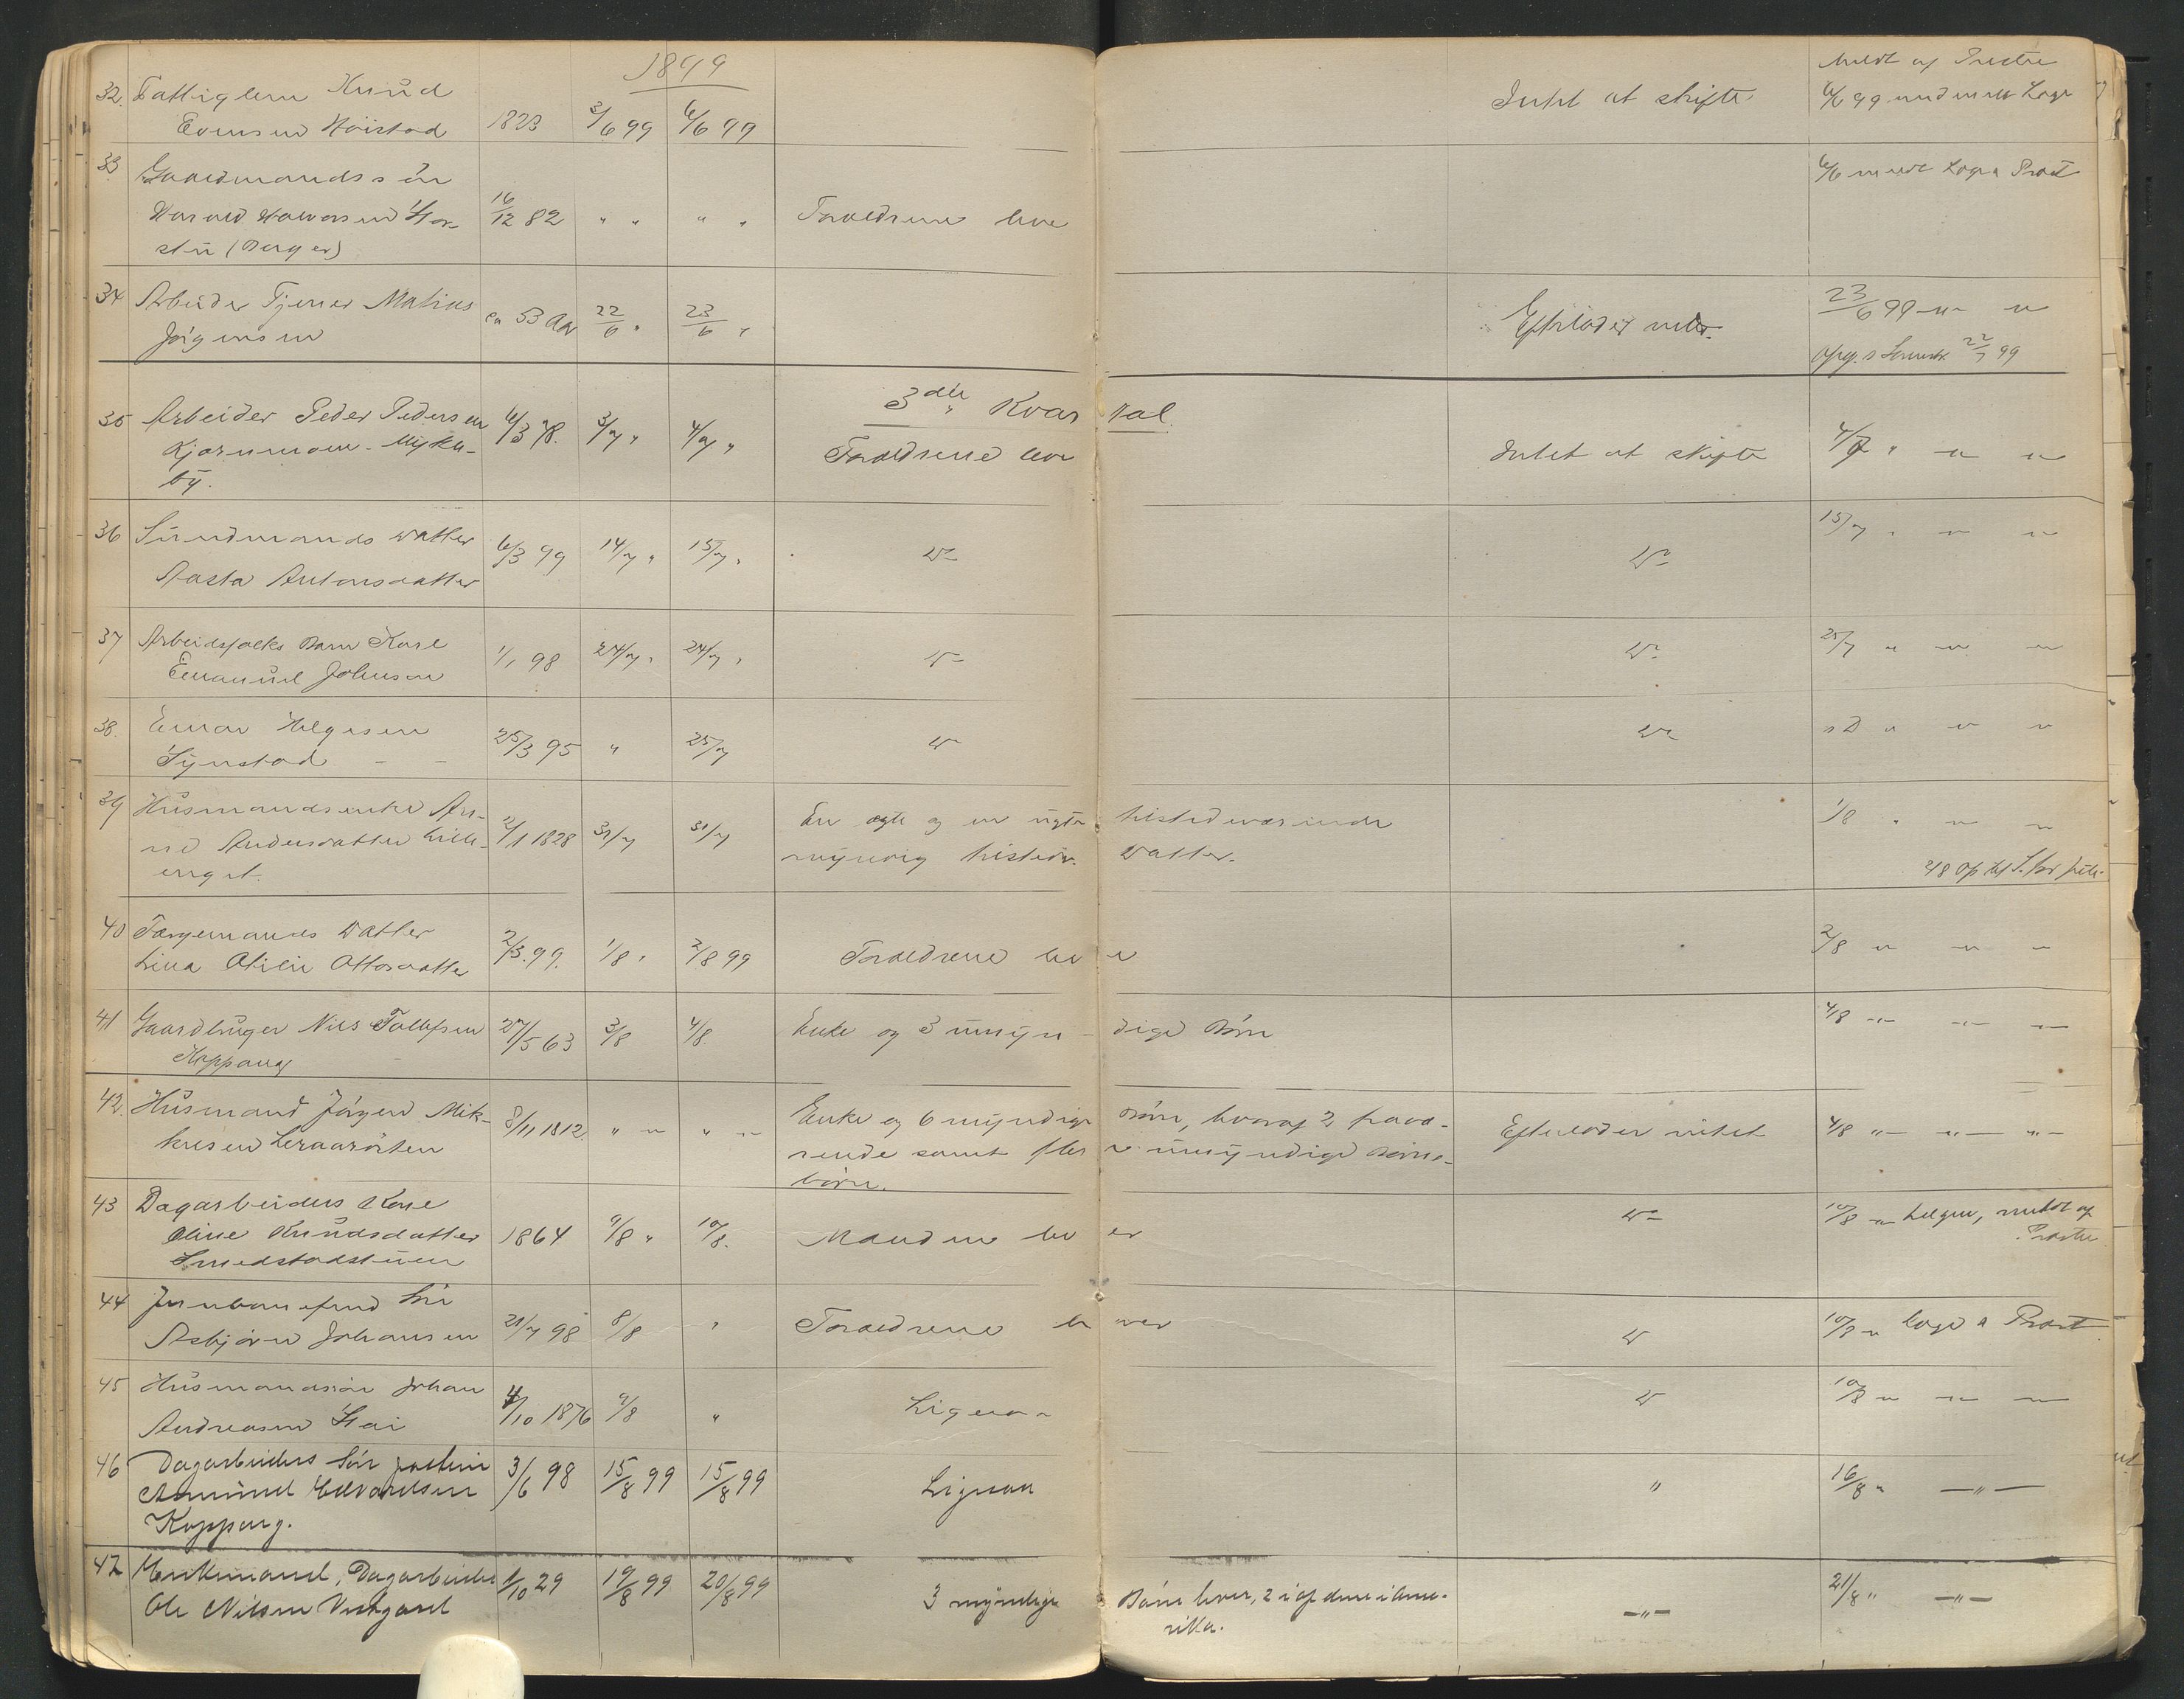 1899
32. Fattiglem Knud
Evensen Höistad 1823 3/6 99 6/6 99 Intet at skifte meldt af Presten
6/6 99 meldt Lage
33 Gaardmandssön
Harald Halvorsen
stu (Berger) 16/12 82 " " " " Forældrene leve 6/6 meldt Prest
34 Arbeider Tjener Matius
Jörgensen ca 53 Aar 22/6 " 23/6 " Efterlader 23/6 99 -"- "
22/7 99
3die Kvartal
35 Arbeider Peder Pedersen
Kjernmoen - Mykle-
by. 3/7 " 4/7 " Forældrene leve Intet at skifte 4/7 " -"- -"-
36 datter
Aasta Antonsdatter 6/3 99 14/7 " 15/7 " Do Do 15/7 " -"- -"-
37 Arbeidsfolks Barn Karl
Emanuel Johnsen 1/1 98 24/7 " 24/7 " Do Do 25/7 " -"- -"-
38. Einar Helgesen
25/3 95 " 25/7 Do Do sD " -"- -"-
39 Husmandsenke An-
ne Andersdatter Lille-
enget. 2/1 1828 31/7 31/7 En ægte og en uægte tilstedeværende
myndig tilstedv. Datter. 1/8 " -"- -"-
40 datter
Lina Otilie Ottosdatter 2/3. 99. 1/8 " 2/8 99 Forældrene lever 2/8 -"- -"- -"-
41 Gaardbruger Nils Tollefsen
Koppang 27/5 63 3/8 4/8 Enke og 3 umyndige Börn 4/8 -"- -"- -"-
42. Husmand Jörgen Mik-
kelsen 8/11 1812 " -"- " -"- Enke og 6 myndige Börn, hvoraf 2 fravæ-
rende samt flere umyndige Börne-
börn. Efterlader intet 4/8 -"- -"- -"-
43 Dagarbeiders Kone
Oline Knudsdatter
Smedstadstuen 1864 9/8 " 10/8. Manden lever Do 10/8 -"- meldt af
Presten
44 Sön
Asbjörn Johansen 21/7 98 8/8 " Forældrene lever Do 10/8 -"- Prest
45 Husmandssön Johan
Andreasen Stai 4/10 1876 9/8 " Ligesaa Do 10/8 -"- -"- -"-
46 Dagarbeiders Sön
Edvardsen
Koppang. 3/6 98 15/8 99 15/8 99 Ligesaa " 16/8 " -"-
47 Enkemand, Dagarbeider
Ole Nilsen Vestgaard 1/10 29 19/8 99 20/8 99 3 myndige Börn lever, 2 af dem i Ame-
rika. -"- 21/8 " -"-